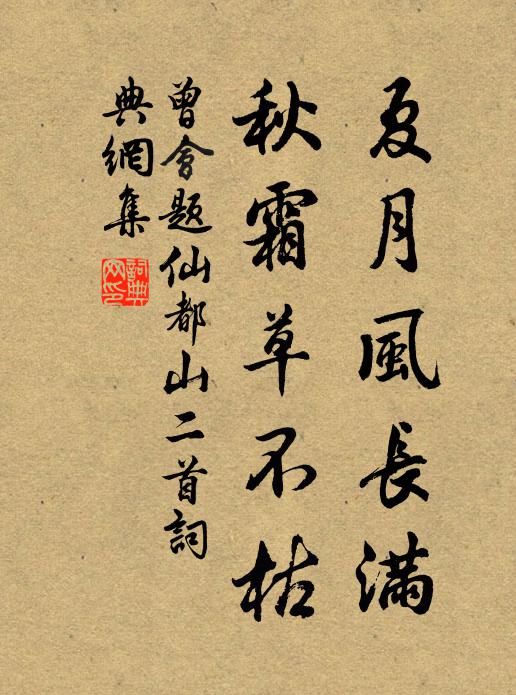 夏月風長滿
秋霜草不枯
曾會題仙都山二首詞
典網集
詞典
网印